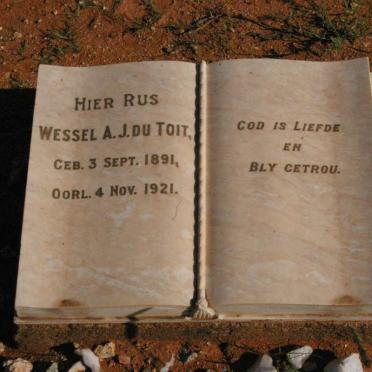 HIER RUS
WESSEL A.J. DU TOIT,
GEB. 3 SEPT. 1891,
OORL. 4 NOV. 1921.
GOD IS LIEFDE
EN
BLY GETROU.